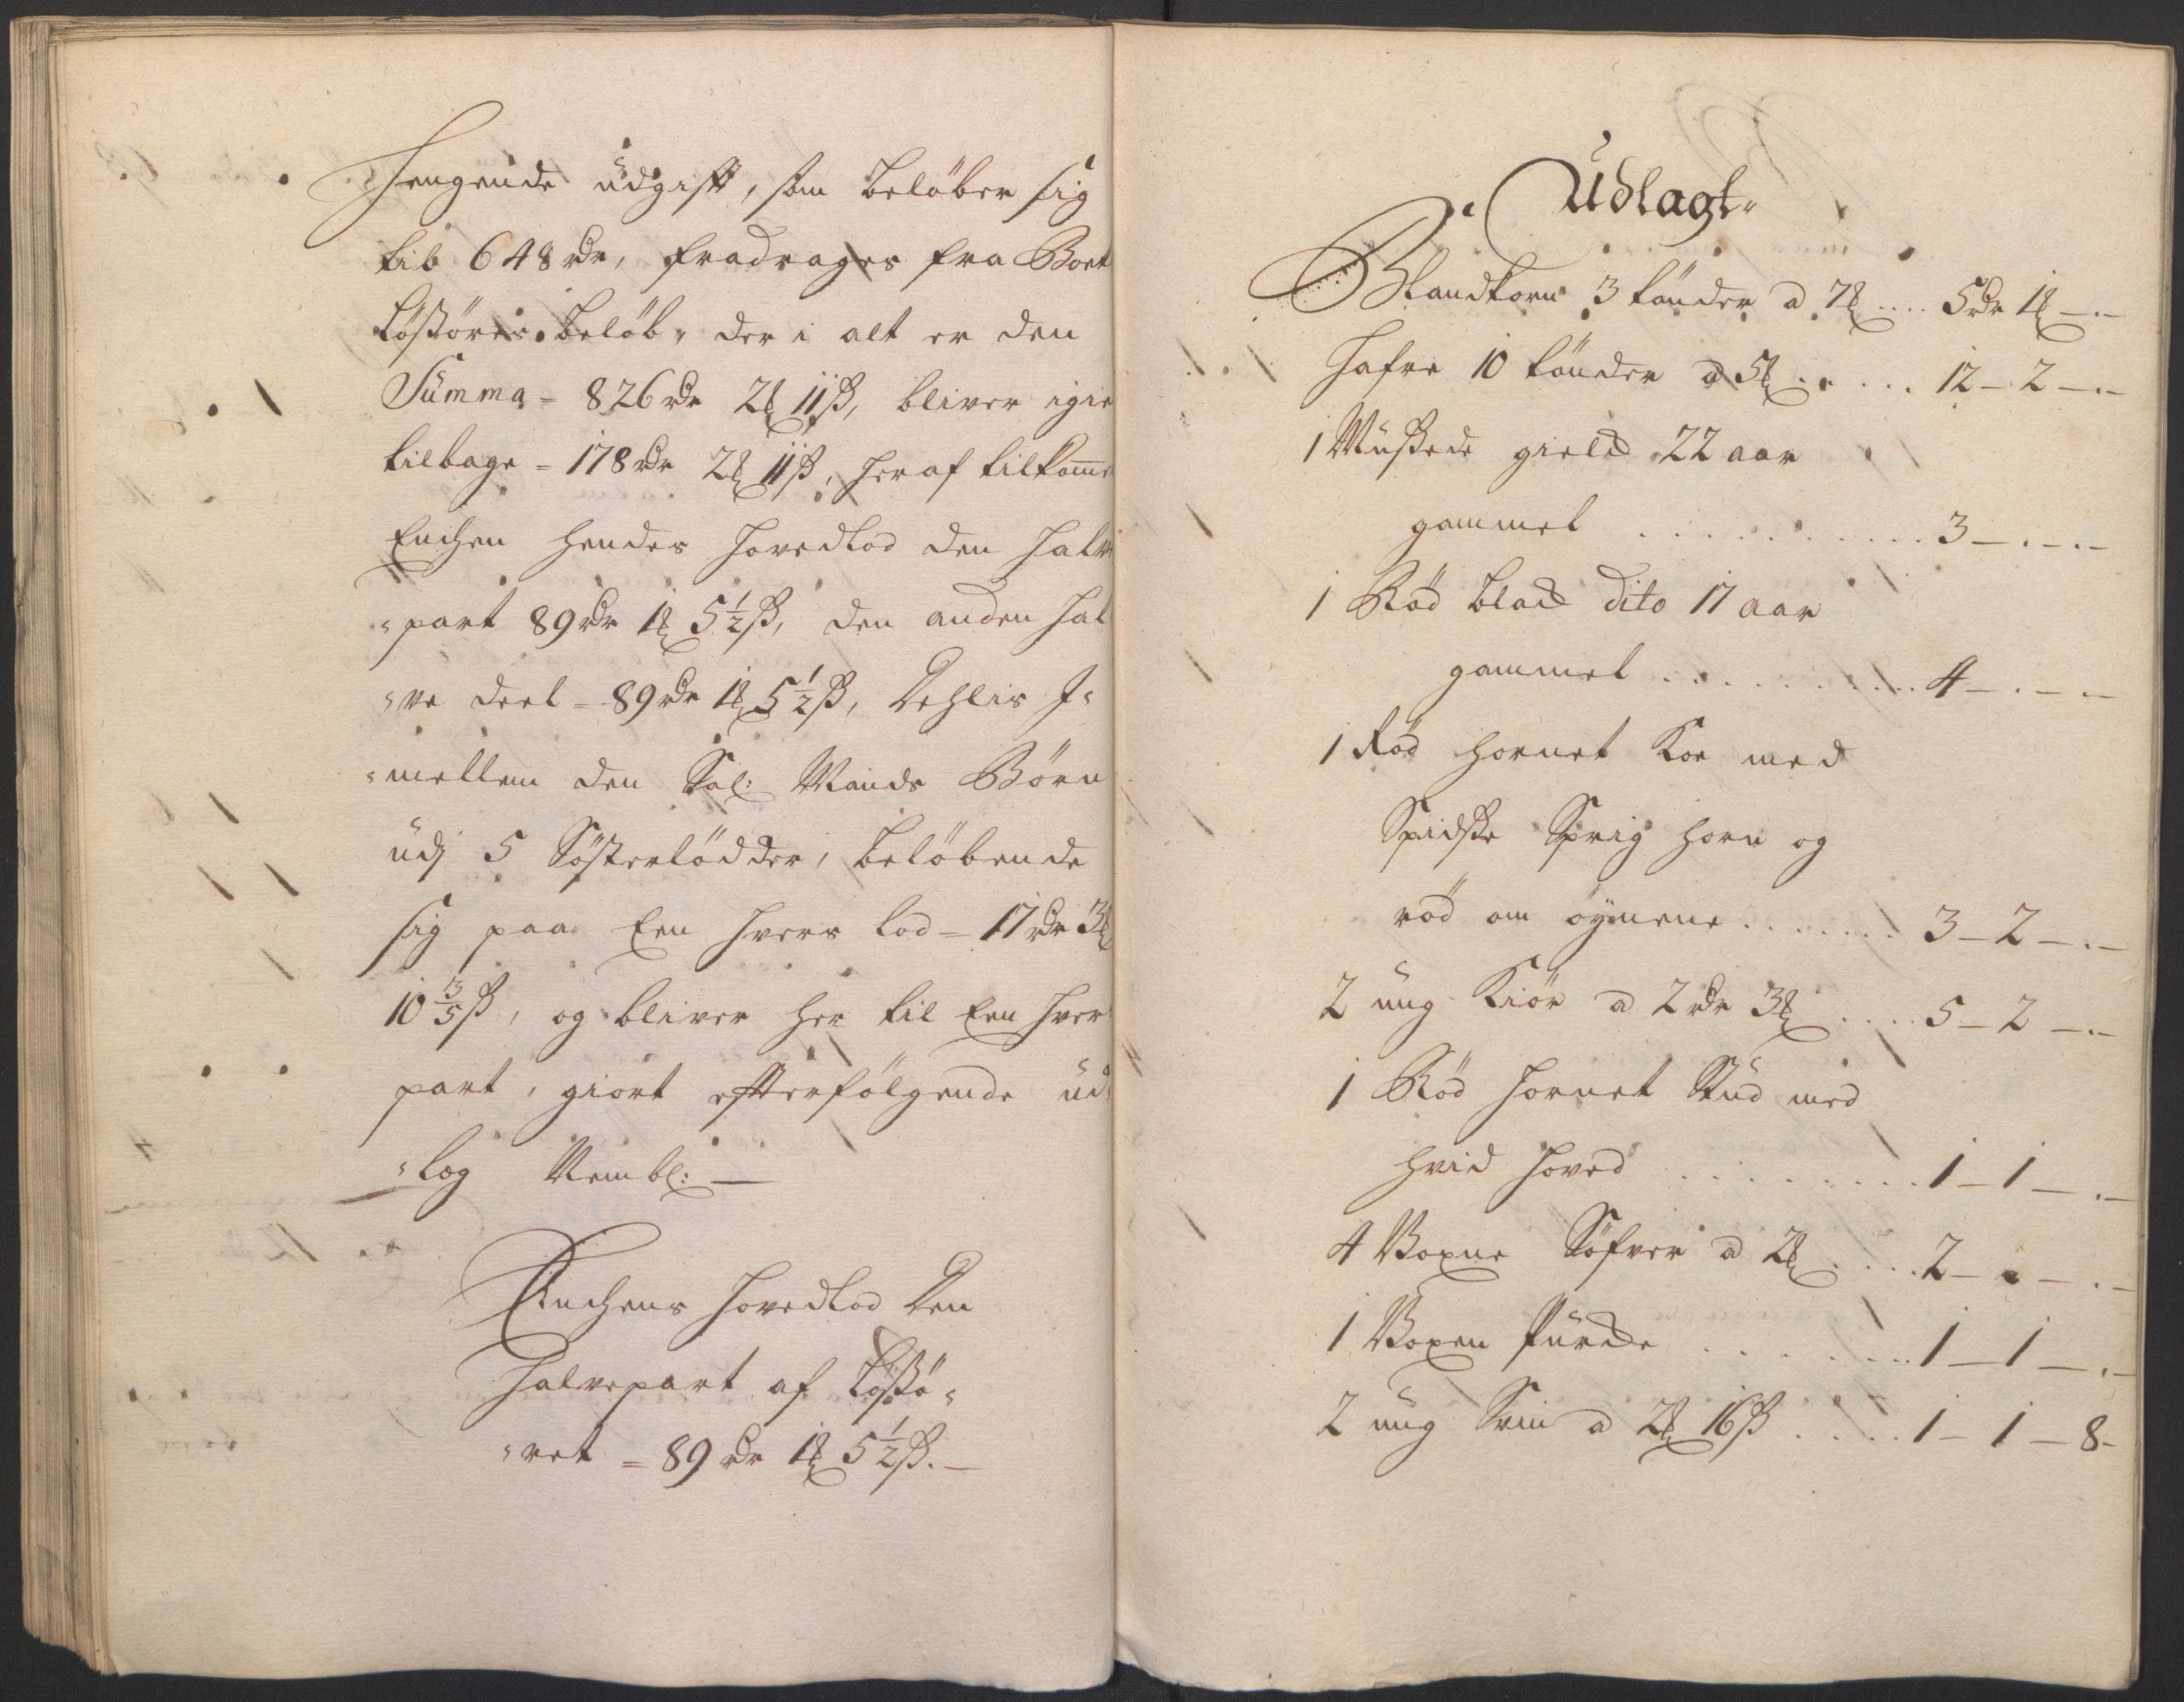 hengende udgift, som beløber sig
til 648 rdr, fradrages fra Boet
løsørets beløb, der i alt er den
Summa = 826 rdr 2 ₰ 11 ß, bliver igie
tilbage = 178 rdr 2 ₰ 11 ß, heraf tilkomme
Enchen hendes Hovedlod den halv
part 89 rdr 1 ₰ 5½ ß, den anden hal
ve deel = 89 rdr 1 ₰ 5½ ß, Dehlis I=
mellem den Sal: Mands Børn
udj 5 Søsterlødder, beløbende
sig paa Een hvers lod = 17 rdr 3 ₰
10 3/5 ß, og bliver her til Een hver
part, giort efterfølgende ud
læg Nembl: —
Enchens Hovedlod Den
Halvepart af løsø=
ret = 89 rdr 1 ₰ 5½ ß. —
Udlagt
Blandkorn 3 tønder a 7 ₰ .... 5 rdr 1 ₰ —.—
Hafre 10 tønder a 5 ₰ ..... 12 — 2 —.—
1 Mussede gield 22 aar
gammel .......... 3 —.—.—
1 Rød blacked dito 17 aar
gammel .......... 4 —.—.—
1 Rød hornet Koe med
Spidske Sprig horn og
rød om øynene ....... 3 — 2 —.—
2 ung Kiør a 2 rdr 3 ₰ .... 5 — 2 —.—
1 Rød hornet Stud med
hvid hoved ......... 1 — 1 —.—
4 Voxne Søfver a 2 ₰ .... 2 —.—.—
1 Voxen Purcke ....... 1 — 1 —.—
2 ung Svin a 2 ₰ 16 ß .... 1 — 1 — 8 —